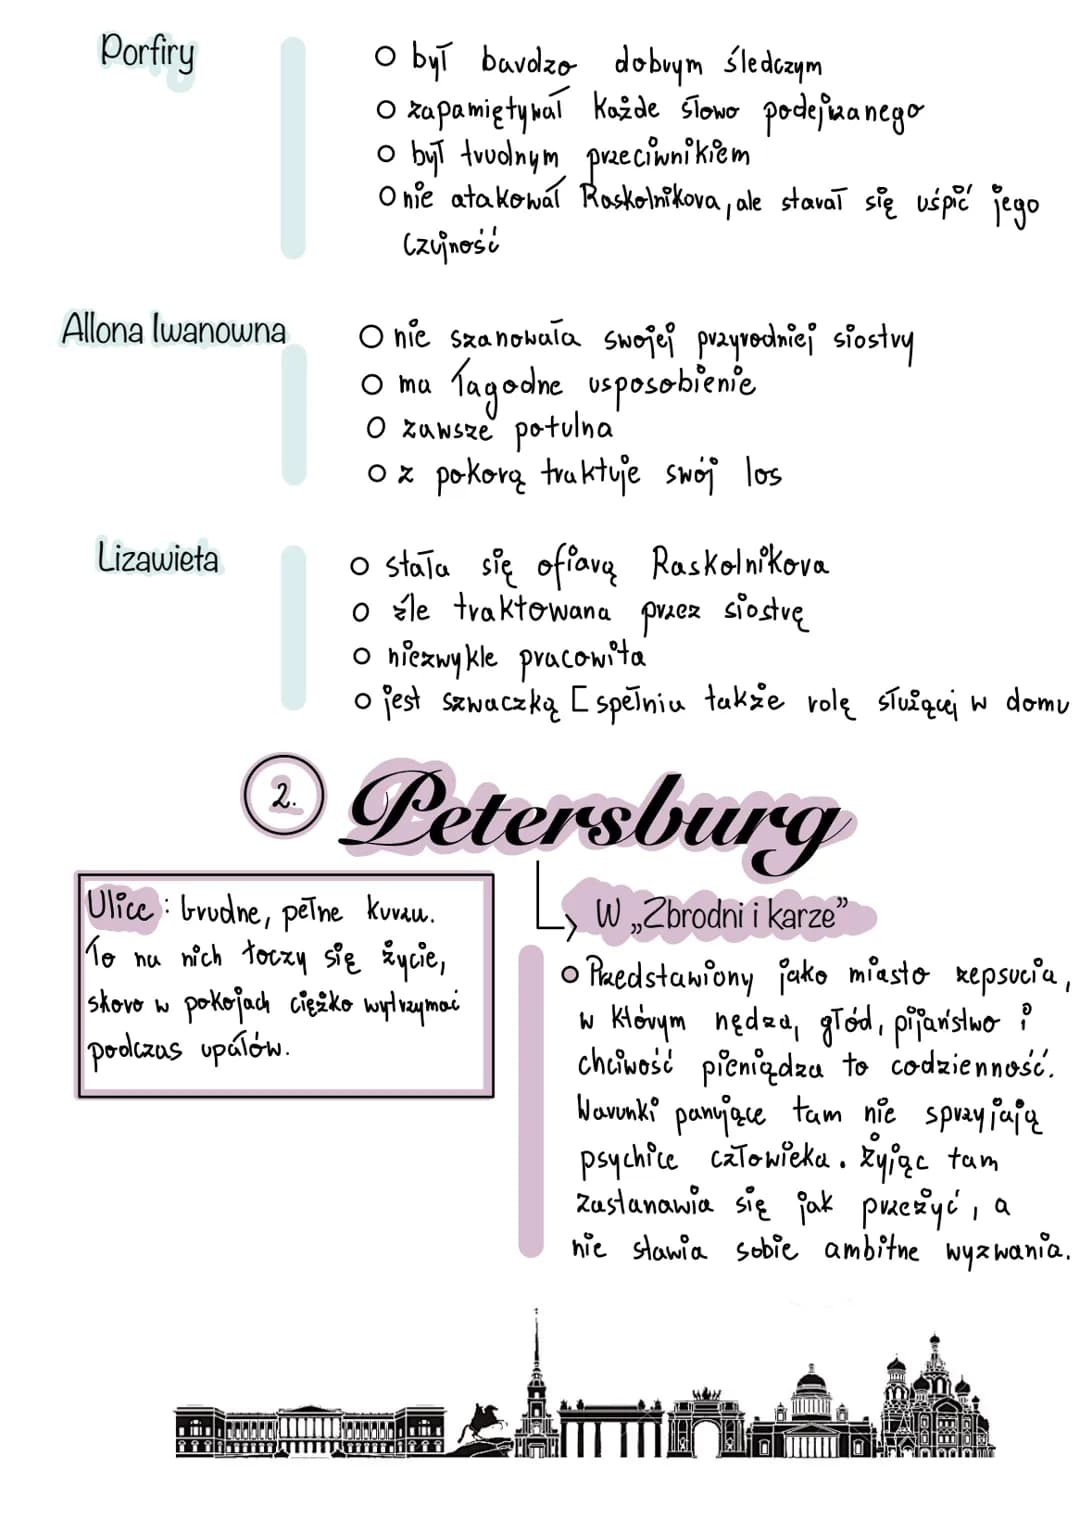 Porfiry
○ był bardzo dobrym śledczym
○ zapamiętywał każde słowo podejrzanego
○ był trudnym przeciwnikiem
○ nie atakował Raskolnikova, ale starał się uśpić jego
czujność
Allona Iwanowna
○ nie szanowała swojej przyrodniej siostry
○ ma łagodne usposobienie
○ zawsze potulna
○ z pokorą traktuje swój los
Lizawieta
○ stała się ofiarą Raskolnikova
○ źle traktowana przez siostrę
○ niezwykle pracowita
○ jest szwaczką [ spełnia także rolę służącej w domu
2. Petersburg
Ulice: brudne, pełne kurzu.
To na nich toczy się życie,
skoro w pokojach ciężko wytrzymać
podczas upałów.
W „Zbrodni i karze"
○ Przedstawiony jako miasto zepsucia,
w którym nędza, głód, pijaństwo i
chciwość pieniądza to codzienność.
Warunki panujące tam nie sprzyjają
psychice człowieka. Żyjąc tam
zastanawia się jak przeżyć, a
nie stawia sobie ambitne wyzwania.